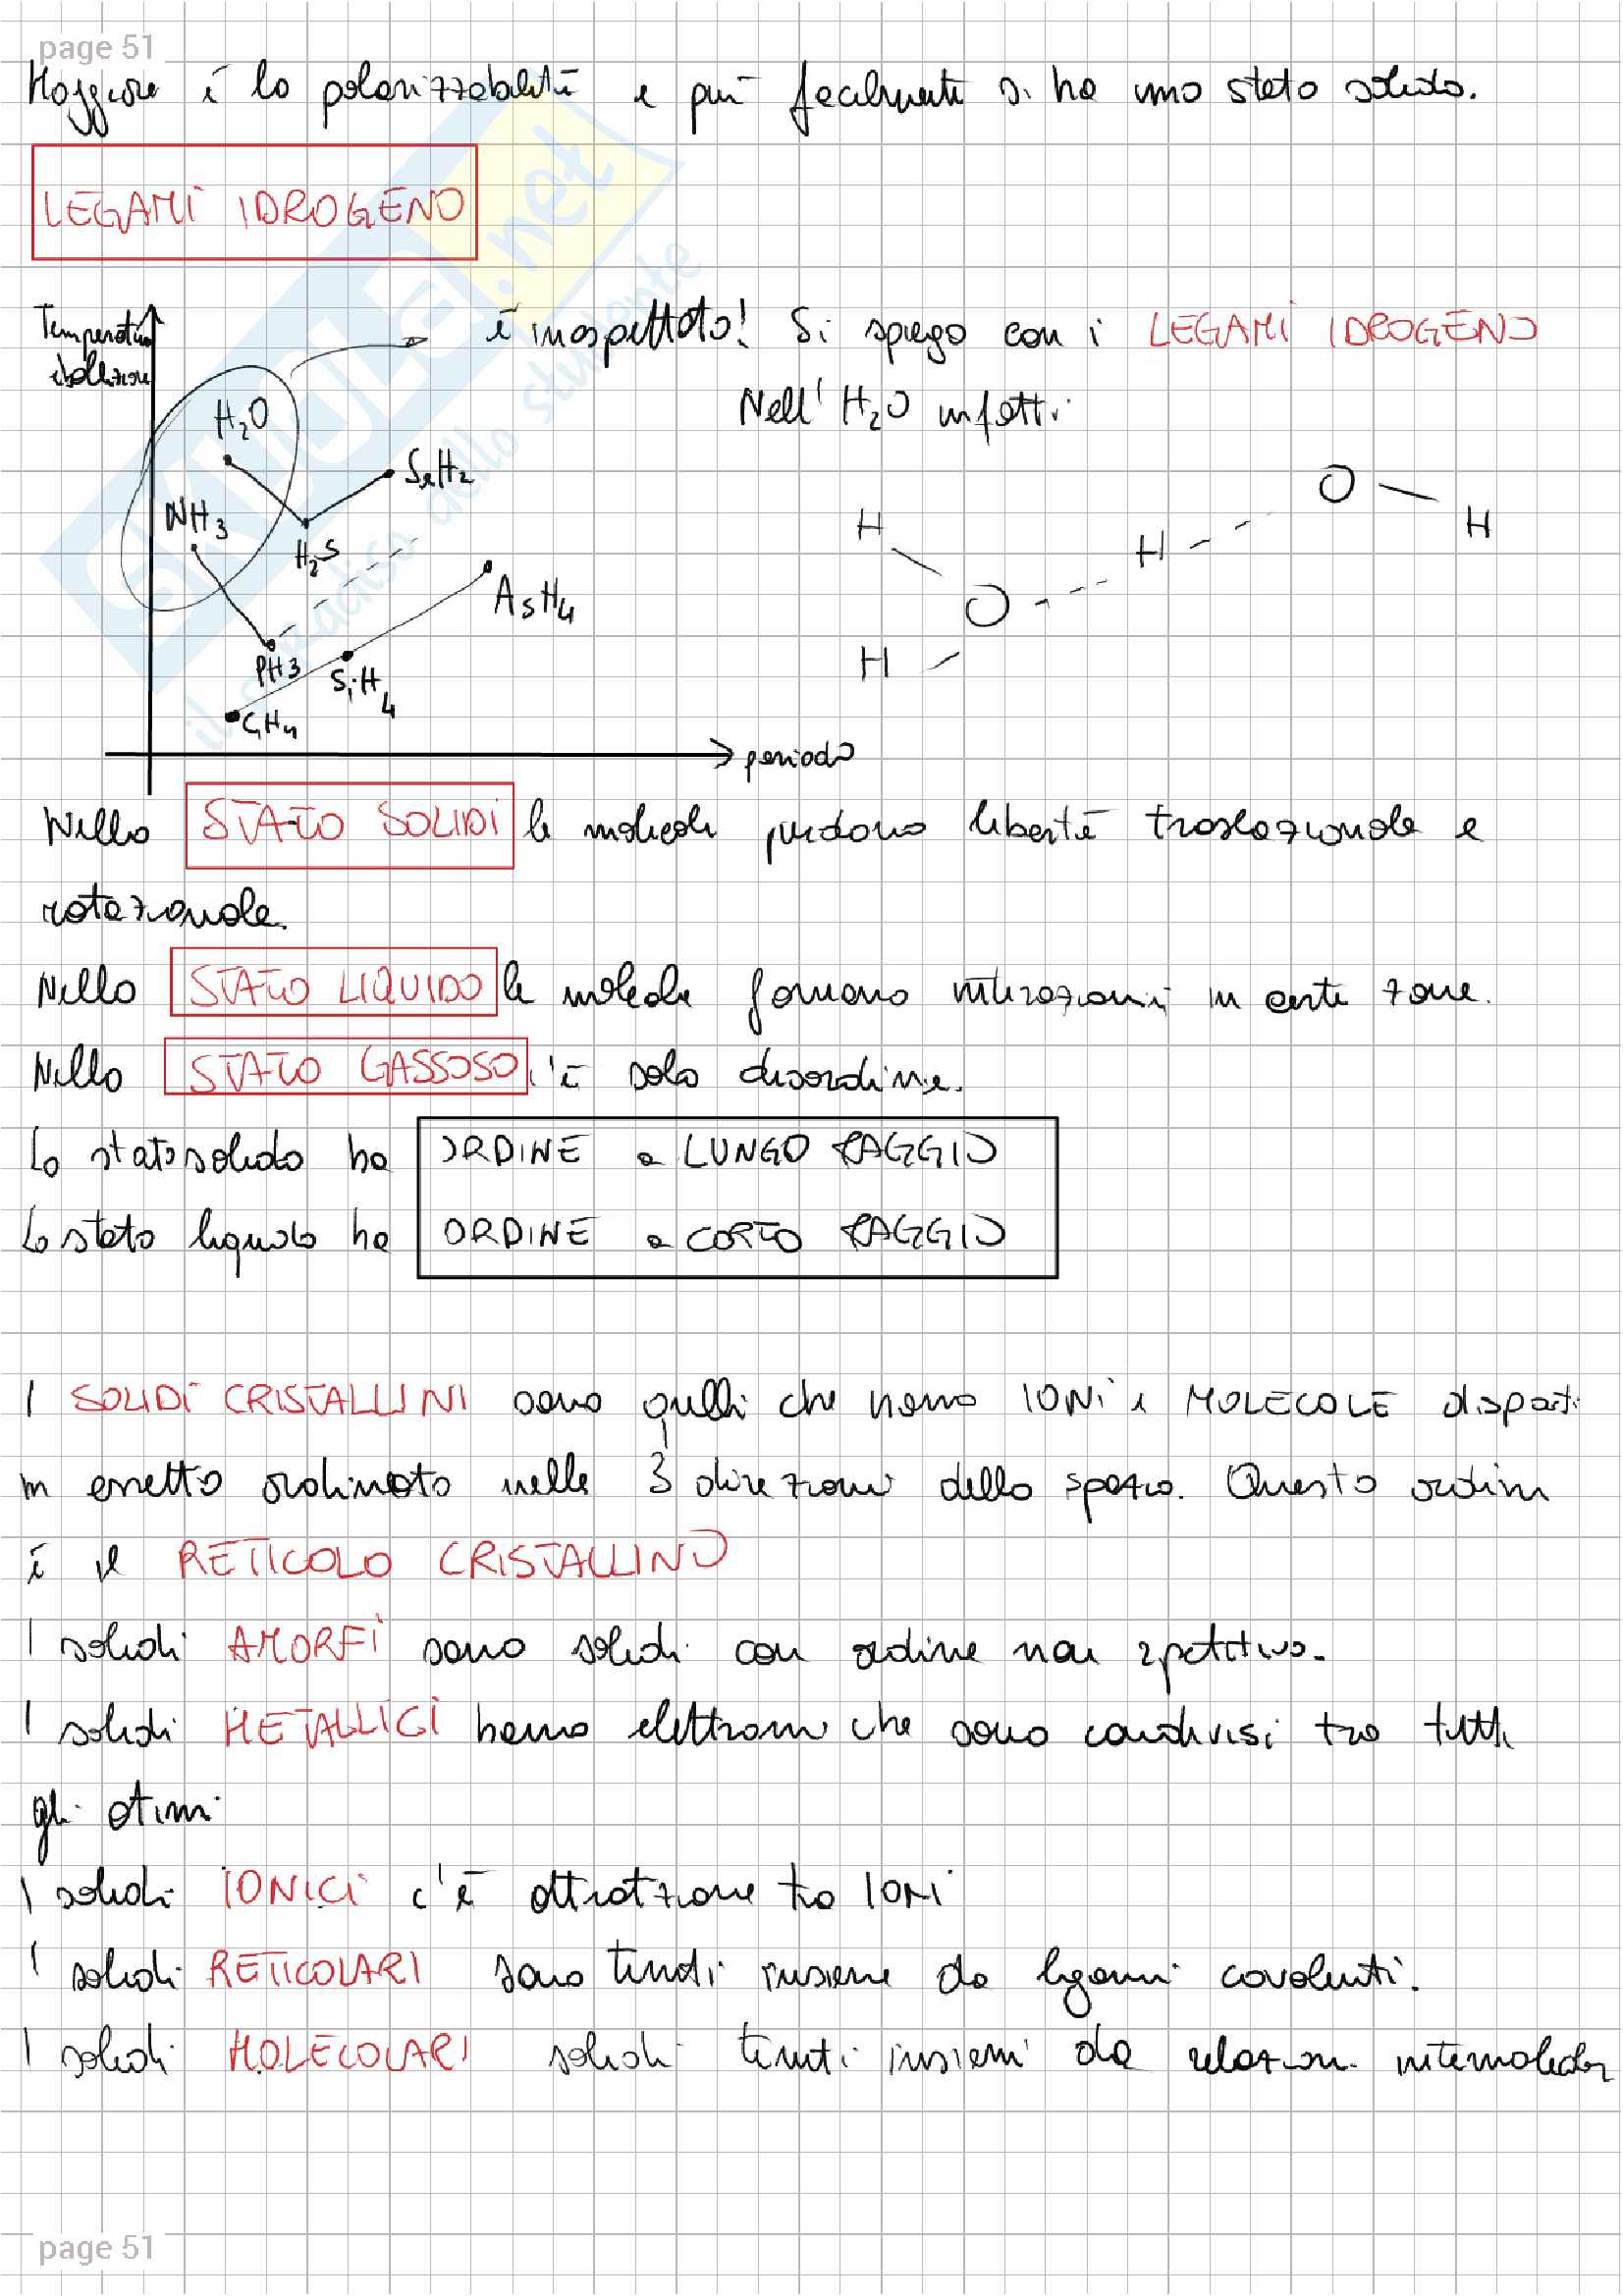 page 51
Maggiore è la polarizzabilità e più facilmente si ha uno stato solido.
LEGAMI IDROGENO
Temperatura
ebollizione
è inaspettato! Si spiega con i LEGAMI IDROGENO
Nell' H₂O infatti
H₂O
SeH₂
NH₃
H₂S
AsH₄
PH3
SiH₄
CH₄
periodo
O
H
H
H
O
H
Nello STATO SOLIDI le molecole perdono libertà traslazionale e
rotazionale.
Nello STATO LIQUIDO le molecole formano interazioni in certe zone.
Nello STATO GASSOSO c'è solo disordine.
Lo stato solido ha ORDINE a LUNGO RAGGIO
Lo stato liquido ha ORDINE a CORTO RAGGIO
I SOLIDI CRISTALLINI sono quelli che hanno IONI e MOLECOLE disposti
in assetto ordinato nelle 3 direzioni dello spazio. Questo ordine
è il RETICOLO CRISTALLINO
I solidi AMORFI sono solidi con ordine non ripetitivo.
I solidi METALLICI hanno elettroni che sono condivisi tra tutti
gli atomi
I solidi IONICI c'è attrazione tra IONI
I solidi RETICOLARI sono tenuti insieme da legami covalenti.
I solidi MOLECOLARI solidi tenuti insieme da relazioni intermolecolari
page 51
SKUOLA.net
il paradiso dello studente